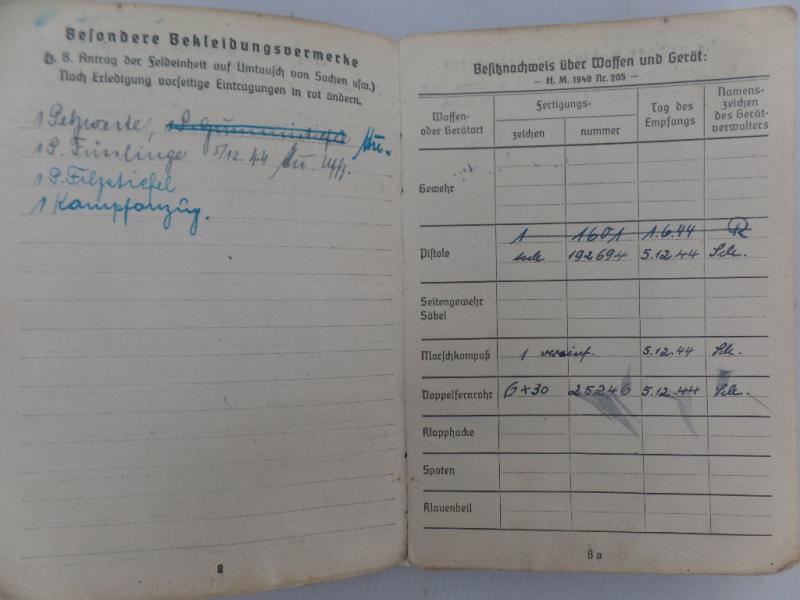 Besondere Bekleidungsvermerke
(z. B. Antrag der Feldeinheit auf Umtausch von Sachen usw.)
Nach Erledigung vorseitige Eintragungen in rot ändern.
1 Pelzweste, 1 P. Gummistiefel
1 P. Füsslinge 5/12. 44 Uffz.
1 P. Filzstiefel
1 Kampfanzug.
8
Besitznachweis über Waffen und Gerät:
— H. M. 1940 Nr. 205 —
Waffen- oder Gerätart Fertigungs- zeichen nummer Tag des Empfangs Namenszeichen des Gerätverwalters
Gewehr
1 1601 1.6.44 R
Pistole 192694 5.12.44 Sch.
Seitengewehr
Säbel
Marschkompaß 1 vereinf. 5.12.44 Sch.
Doppelfernrohr 6x30 25246 5.12.44 Sch.
Klapphacke
Spaten
Klauenbeil
8 a